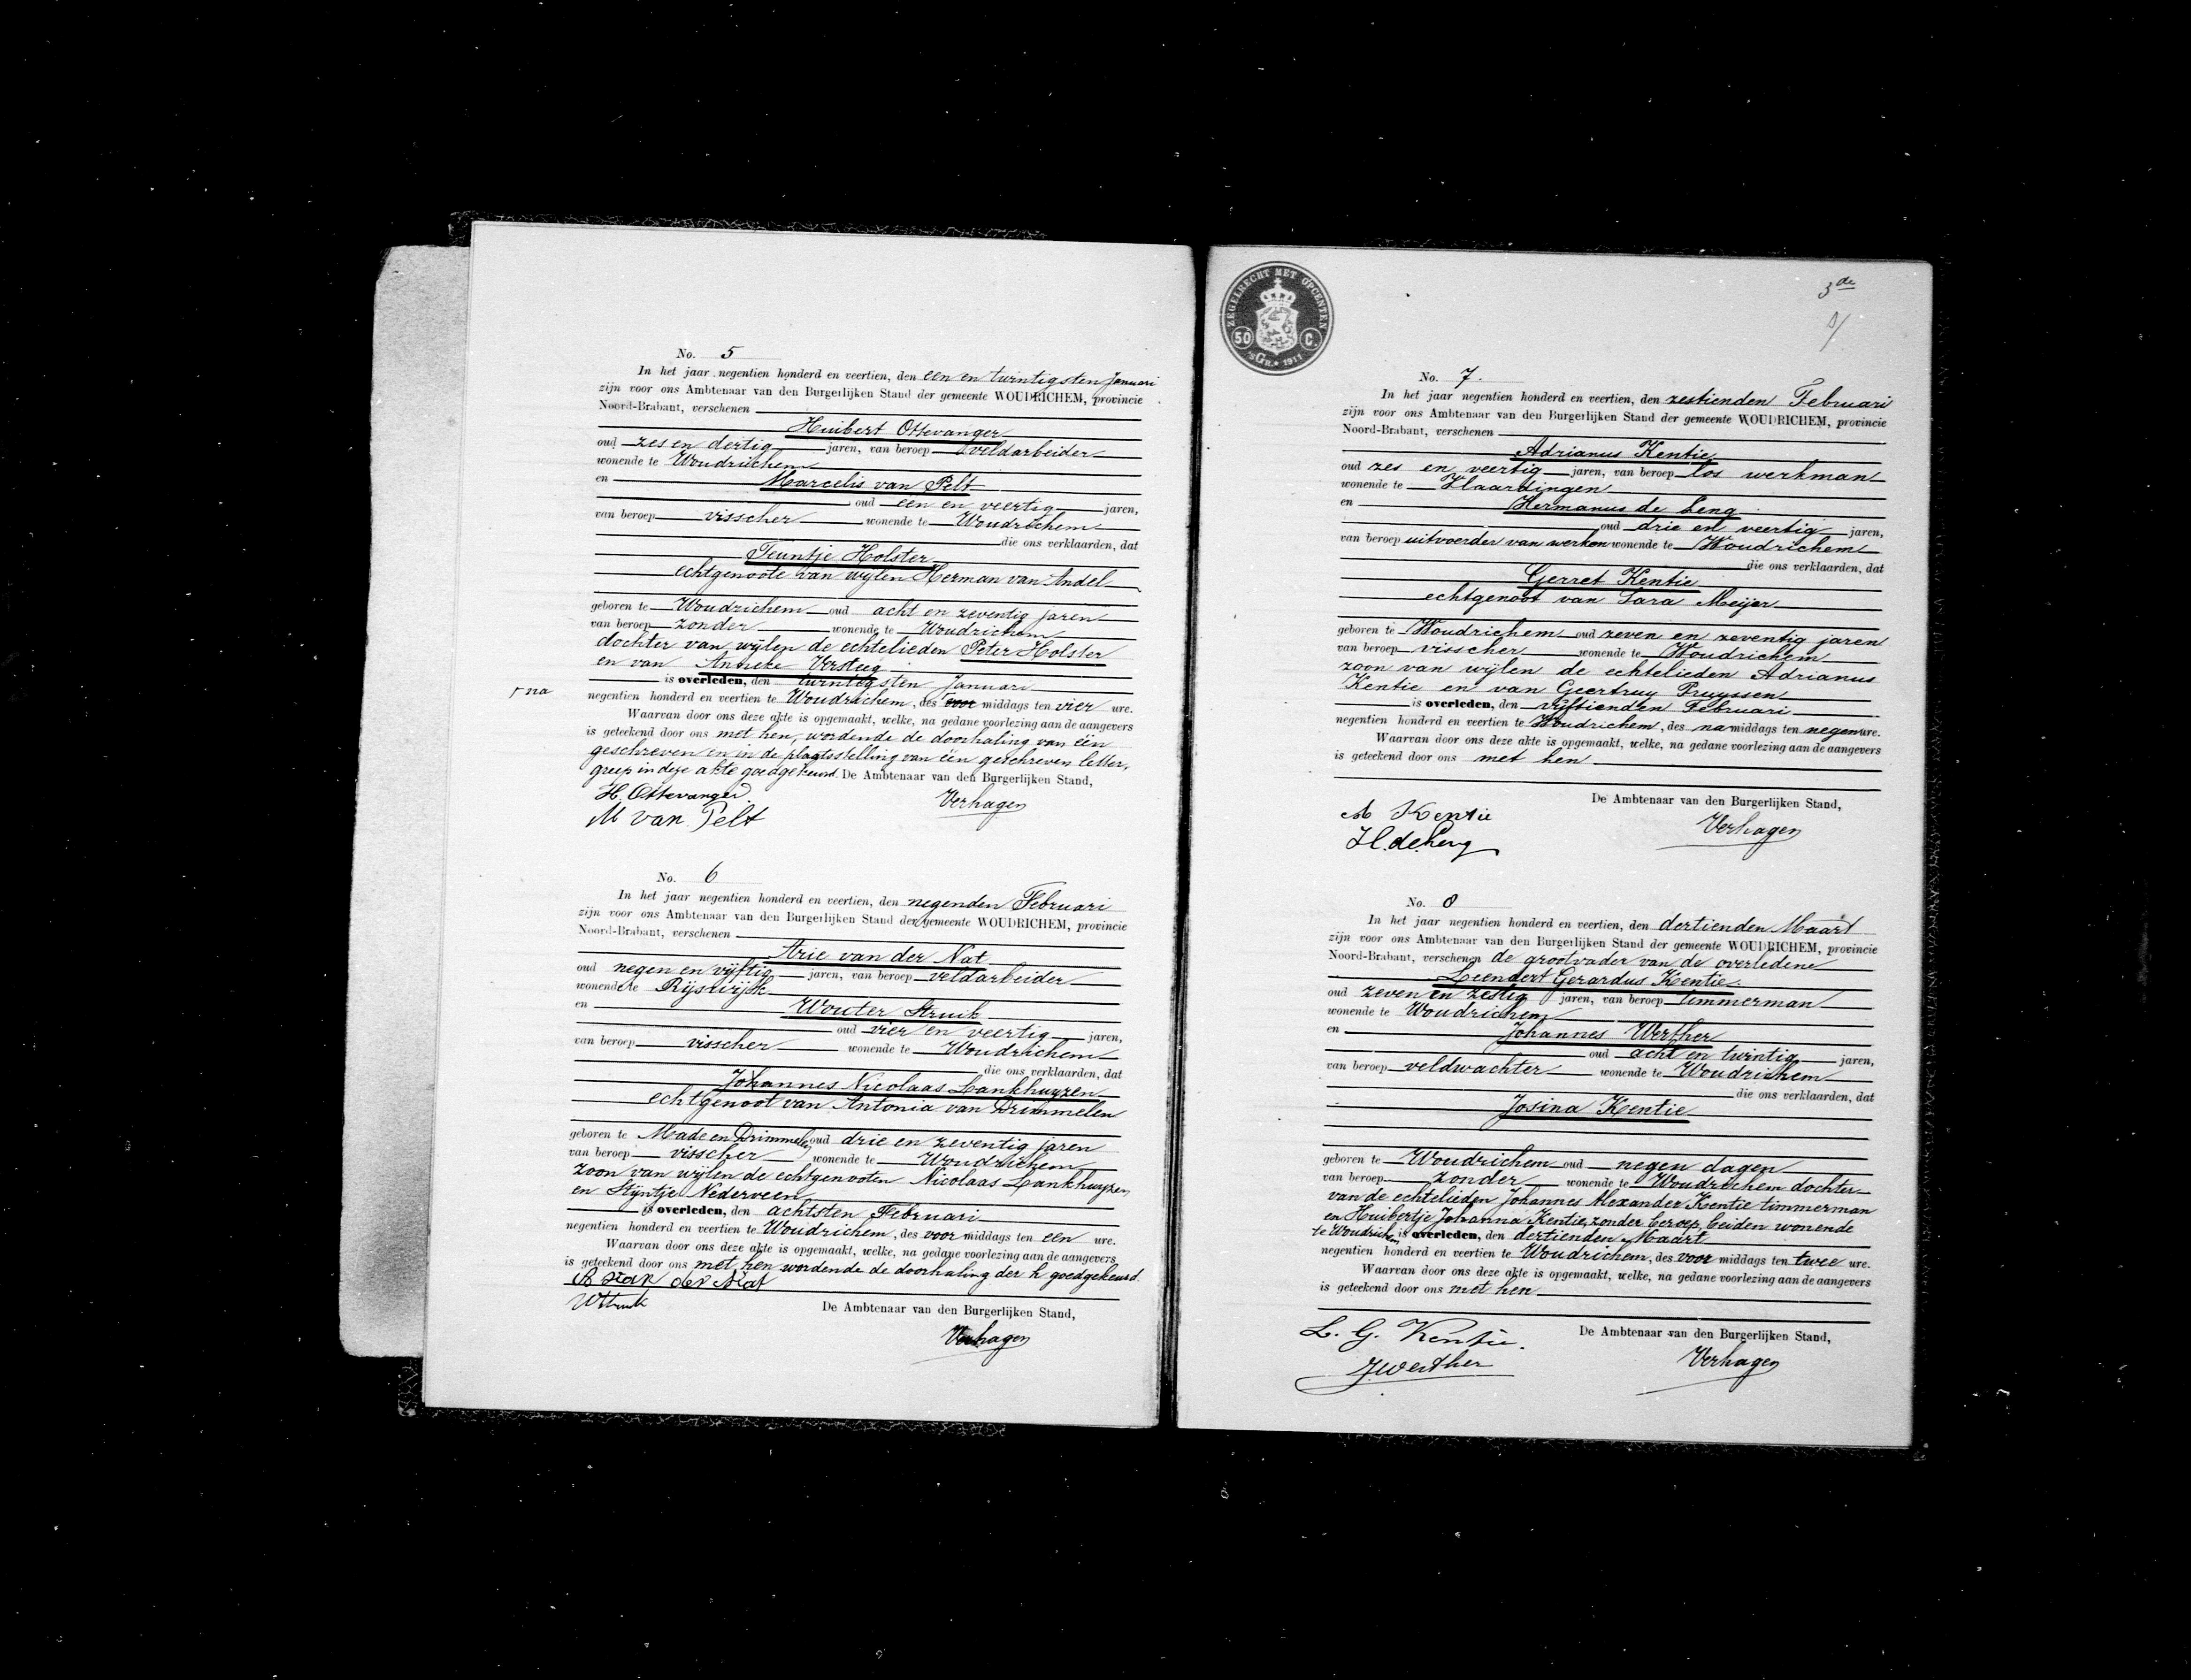 No. 5
In het jaar negentien honderd en veertien, den een en twintigsten Januari
zijn voor ons Ambtenaar van den Burgerlijken Stand der gemeente WOUDRICHEM, provincie
Noord-Brabant, verschenen
Huibert Ottevanger
oud zes en dertig jaren, van beroep veldarbeider
wonende te Woudrichem
en Marcelis van Pelt
oud een en veertig jaren,
van beroep visscher wonende te Woudrichem
die ons verklaarden, dat
Teuntje Holster
echtgenoote van wijlen Herman van Andel
geboren te Woudrichem oud acht en zeventig jaren
van beroep zonder wonende te Woudrichem
dochter van wijlen de echtelieden Peter Holster
en van Anneke Versteeg
is overleden, den twintigsten Januari
na
negentien honderd en veertien te Woudrichem, des voor middags ten vier ure.
Waarvan door ons deze akte is opgemaakt, welke, na gedane voorlezing aan de aangevers
is geteekend door ons met hen, wordende de doorhaling van één
geschreven en in de plaatsstelling van één geschreven letter,
greep in deze akte goedgekeurd. De Ambtenaar van den Burgerlijken Stand,
H. Ottevanger Verhagen
M van Pelt
No. 6
In het jaar negentien honderd en veertien, den negenden Februari
zijn voor ons Ambtenaar van den Burgerlijken Stand der gemeente WOUDRICHEM, provincie
Noord-Brabant, verschenen
Arie van der Nat
oud negen en vijftig jaren, van beroep veldarbeider
wonende te Rijswijk
en Wouter Struik
oud vier en veertig jaren,
van beroep visscher wonende te Woudrichem
die ons verklaarden, dat
Johannes Nicolaas Lankhuyzen
echtgenoot van Antonia van Drimmelen
geboren te Made en Drimmelen oud drie en zeventig jaren
van beroep visscher wonende te Woudrichem
zoon van wijlen de echtgenooten Nicolaas Lankhuyzen
en Stijntje Nederveen
is overleden, den achtsten Februari
negentien honderd en veertien te Woudrichem, des voor middags ten een ure.
Waarvan door ons deze akte is opgemaakt, welke, na gedane voorlezing aan de aangevers
is geteekend door ons met hen wordende de doorhaling der h goedgekeurd.
der Nat
WStruik De Ambtenaar van den Burgerlijken Stand,
Verhagen
ZEGELRECHT MET OPCENTEN
50 C.
'sGR. 1911
3de
No. 7.
In het jaar negentien honderd en veertien, den zestienden Februari
zijn voor ons Ambtenaar van den Burgerlijken Stand der gemeente WOUDRICHEM, provincie
Noord-Brabant, verschenen
Adrianus Kentie
oud zes en veertig jaren, van beroep los werkman
wonende te Vlaardingen
en Hermanus de Leng
oud drie en veertig jaren,
van beroep uitvoerder van werken wonende te Woudrichem
die ons verklaarden, dat
Gerret Kentie
echtgenoot van Sara Meijer
geboren te Woudrichem oud zeven en zeventig jaren
van beroep visscher wonende te Woudrichem
zoon van wijlen de echtelieden Adrianus
Kentie en van Geertruy Pruyssen
is overleden, den vijftienden Februari
negentien honderd en veertien te Woudrichem, des na middags ten negen ure.
Waarvan door ons deze akte is opgemaakt, welke, na gedane voorlezing aan de aangevers
is geteekend door ons met hen
De Ambtenaar van den Burgerlijken Stand,
A Kentie Verhagen
H. de Leng
No. 8
In het jaar negentien honderd en veertien, den dertienden Maart
zijn voor ons Ambtenaar van den Burgerlijken Stand der gemeente WOUDRICHEM, provincie
Noord-Brabant, verschenen de grootvader van de overledene
Leendert Gerardus Kentie
oud zeven en zestig jaren, van beroep timmerman
wonende te Woudrichem
en Johannes Werther
oud acht en twintig jaren,
van beroep veldwachter wonende te Woudrichem
die ons verklaarden, dat
Josina Kentie
geboren te Woudrichem oud negen dagen
van beroep zonder wonende te Woudrichem dochter
van de echtelieden Johannes Alexander Kentie timmerman
en Huibertje Johanna Kentie, zonder beroep, beiden wonende
te Woudrichem, is overleden, den dertienden Maart
negentien honderd en veertien te Woudrichem, des voor middags ten twee ure.
Waarvan door ons deze akte is opgemaakt, welke, na gedane voorlezing aan de aangevers
is geteekend door ons met hen
L. G. Kentie. De Ambtenaar van den Burgerlijken Stand,
JWerther Verhagen